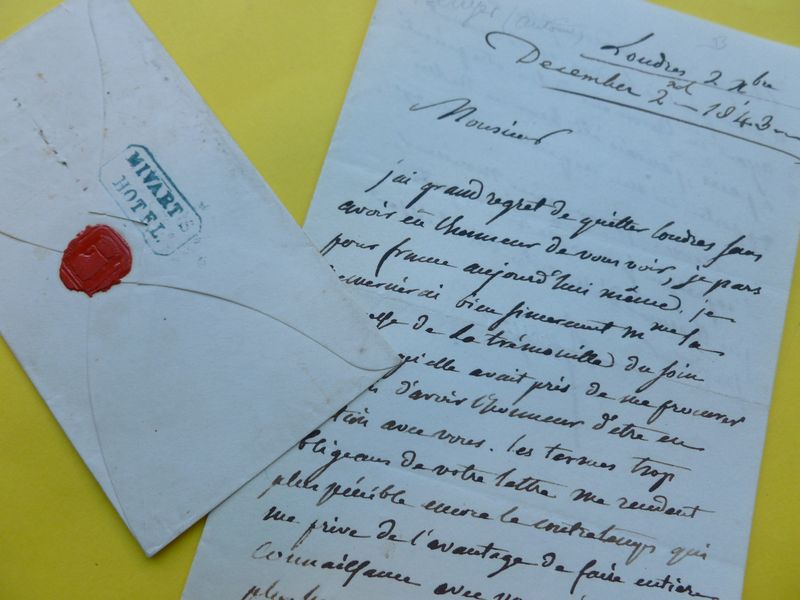 MIVART'S
HOTEL
Londres 2 Xbre
December 2nd 1843
Monsieur
j'ai grand regret de quitter londres sans
avoir eu l'honneur de vous voir, je pars
pour france aujourd'hui même. je
remercierai bien sincerement M me la
de la trémouille du soin
qu'elle avait pris de me procurer
d'avoir l'honneur d'être en
avec vous. les termes trop
obligeans de votre lettre me rendent
plus pénible encore le contretemps qui
me prive de l'avantage de faire entière
connaissance avec